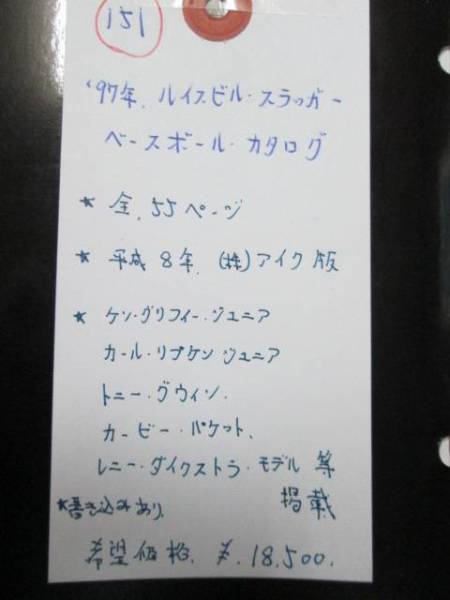 151
'97年.ルイスビル・スラッガー
ベースボール・カタログ
* 全.55ページ
* 平成8年.(株)アイク版
* ケン・グリフィー・ジュニア
カール・リプケンジュニア
トニー・グウィン.
カービー・パケット、
レニー・ダイクストラ・モデル等
掲載
*書き込みあり.
希望価格.¥.18,500.